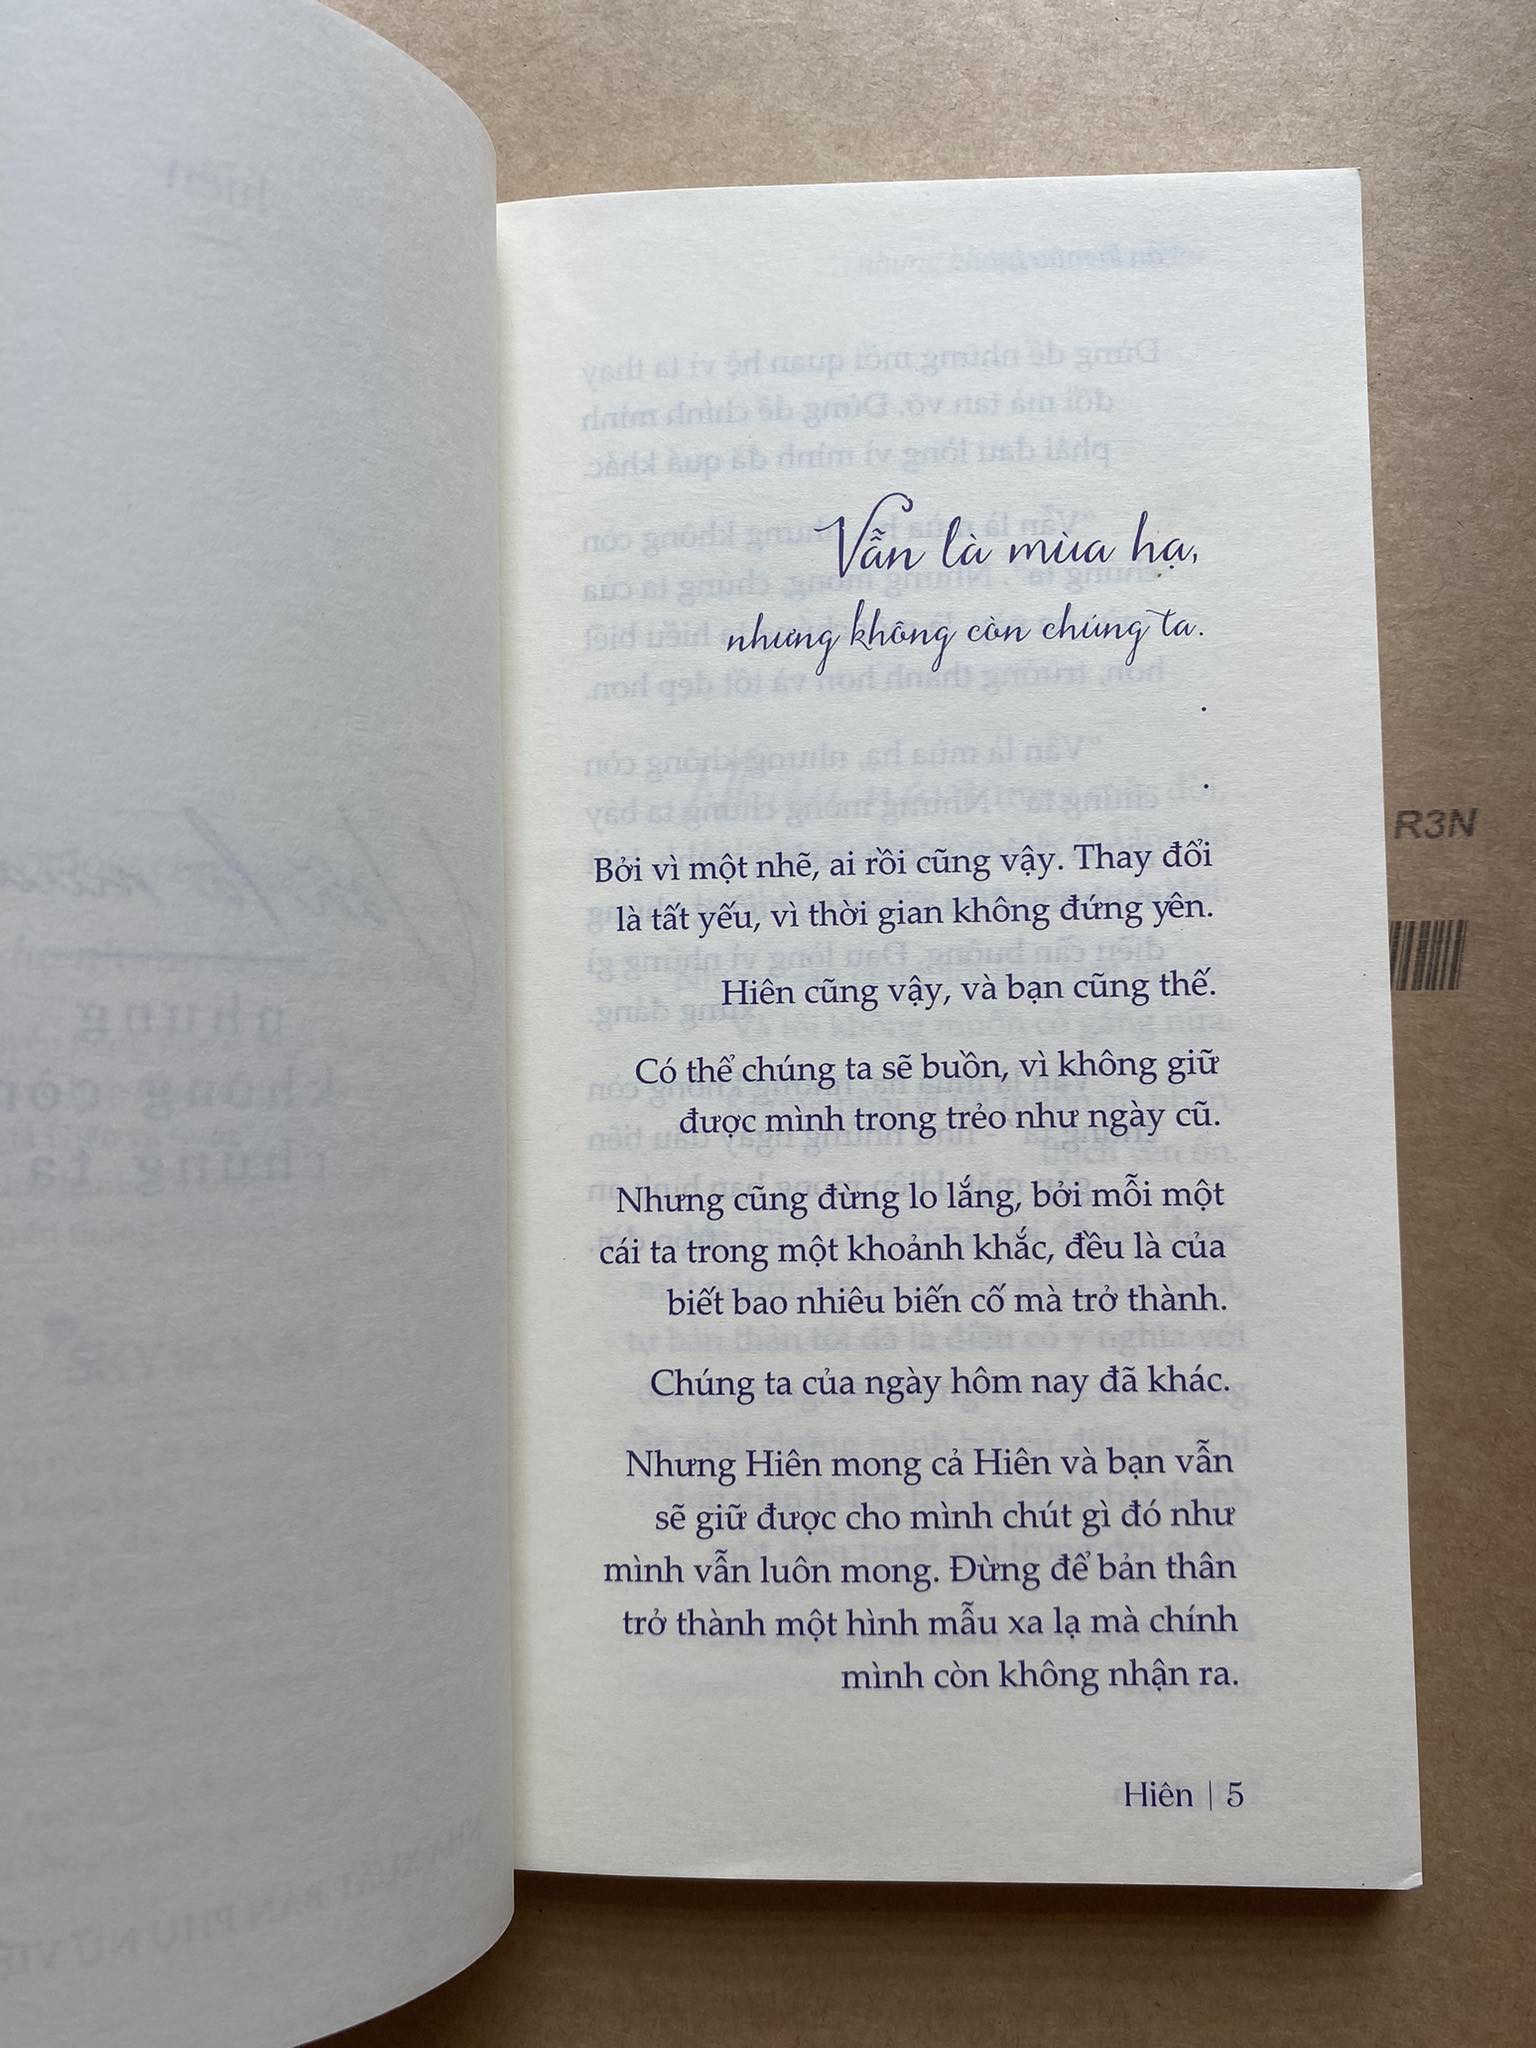 Vẫn là mùa hạ,
nhưng không còn chúng ta.
.
.
Bởi vì một nhẽ, ai rồi cũng vậy. Thay đổi
là tất yếu, vì thời gian không đứng yên.
Hiên cũng vậy, và bạn cũng thế.
Có thể chúng ta sẽ buồn, vì không giữ
được mình trong trẻo như ngày cũ.
Nhưng cũng đừng lo lắng, bởi mỗi một
cái ta trong một khoảnh khắc, đều là của
biết bao nhiêu biến cố mà trở thành.
Chúng ta của ngày hôm nay đã khác.
Nhưng Hiên mong cả Hiên và bạn vẫn
sẽ giữ được cho mình chút gì đó như
mình vẫn luôn mong. Đừng để bản thân
trở thành một hình mẫu xa lạ mà chính
mình còn không nhận ra.
Hiên | 5
R3N